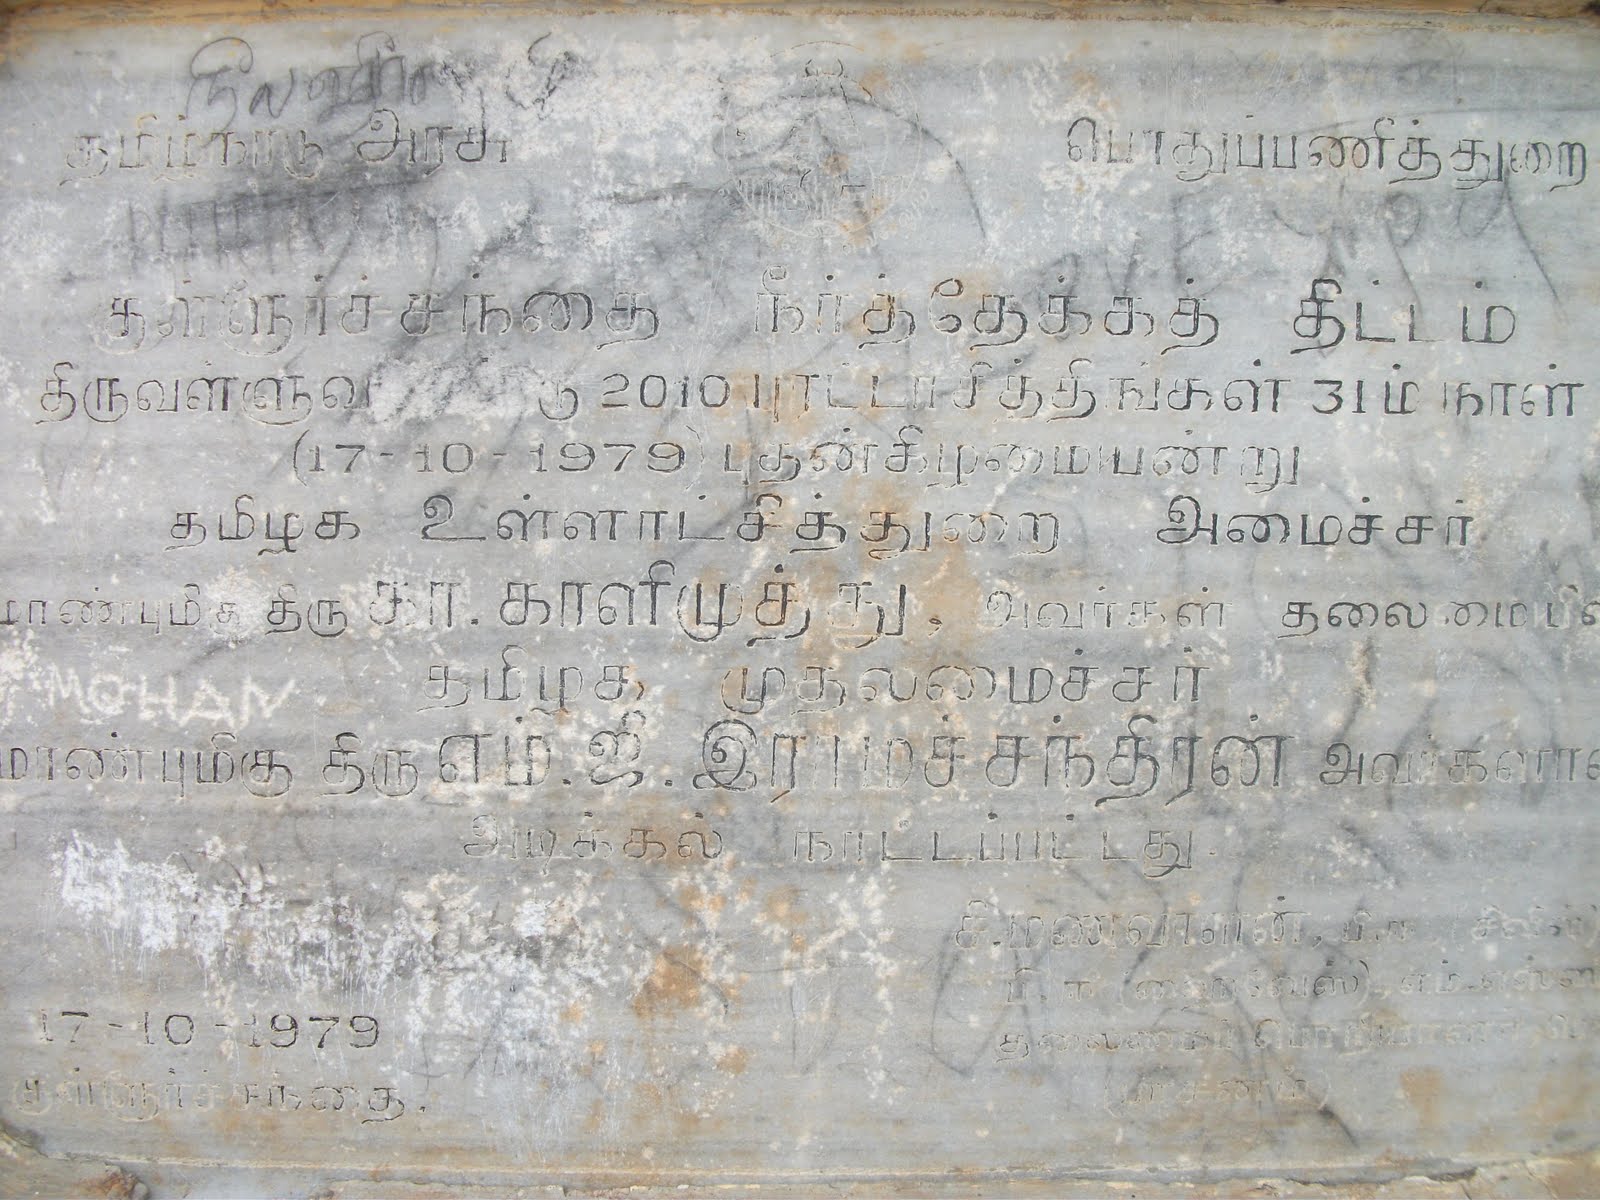 தமிழ்நாடு அரசு
பொதுப்பணித்துறை
குள்ளூர்ச்சந்தை நீர்த்தேக்கத் திட்டம்
திருவள்ளுவ டு 2010 புரட்டாசித்திங்கள் 31ம் நாள்
(17-10-1979) புதன்கிழமையன்று
தமிழக உள்ளாட்சித்துறை அமைச்சர்
மாண்புமிகு திரு கா. காளிமுத்து, அவர்கள் தலைமையில்
MOHAN
தமிழக முதலமைச்சர்
மாண்புமிகு திரு எம்.ஜி. இராமச்சந்திரன் அவர்களால்
அடிக்கல் நாட்டப்பட்டது.
சி.மணவாளன், பி.இ. (சிவில்)
பி.இ (ஹைவேஸ்) எம்.எஸ்ஸி
தலைமைப் பொறியாளர்,
(பாசனம்)
17-10-1979
குள்ளூர்ச்சந்தை.